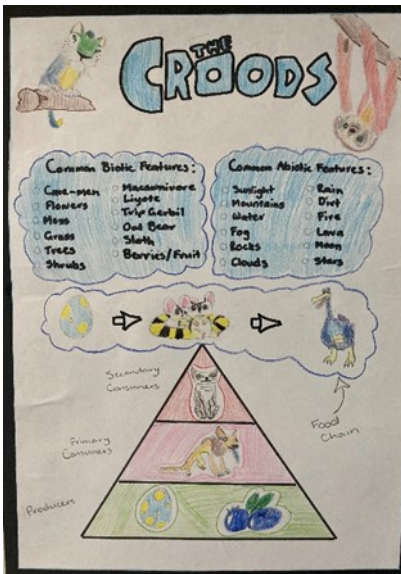 THE
CROODS
Common Biotic Features:
Cave-men
Flowers
Moss
Grass
Trees
Shrubs
Macawnivore
Liyote
Trip Gerbil
Owl Bear
Sloth
Berries/Fruit
Common Abiotic Features:
Sunlight
Mountains
Water
Fog
Rocks
Clouds
Rain
Dirt
Fire
Lava
Moon
Stars
Secondary
Consumers
Primary
Consumers
Producers
Food
Chain